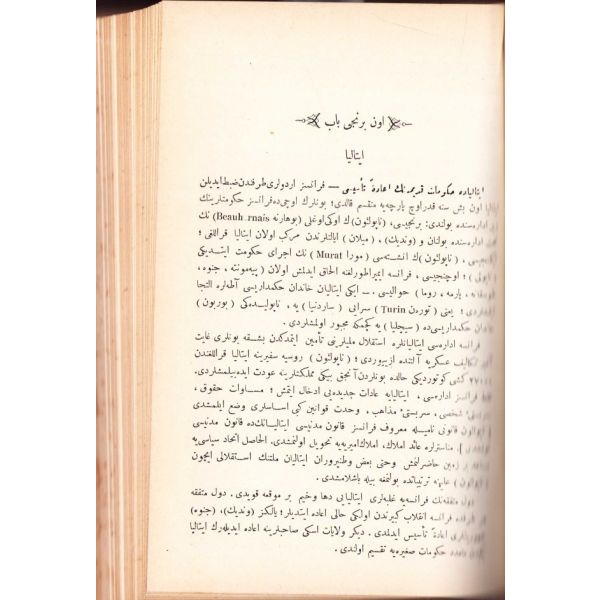 اون برنجی باب
ایتالیا
ایتالیاده حکومات قدیمه‌نك اعادهٔ تأسیسی — فرانسز اردولری طرفندن ضبط ایدیلن
اون بش سنه قدر اوچ پارچه‌یه منقسم قالدی؛ بونلرك اوچی‌ده فرانسز حکومتلرینك
اداره‌سنده بولندی: برنجیسی، (ناپولئون)ك اوکی اوغلی (بوهارنه Beauh.rnais) نك
اداره‌سنده بولنان و (وندیك)، (میلان) ایالتلرندن مرکب اولان ایتالیا قراللغی؛
ایکنجیسی، (ناپولئون)ك انشته‌سی (مورا Murat) نك اجرای حکومت ایتدیکی
؛ اوچنجیسی، فرانسه ایمپراطورلغنه الحاق ایدلمش اولان (پیه‌مونته، جنوه،
پارمه، روما) حوالیسی. — ایکی ایتالیان خاندان حکمداریسی آطه‌لره التجا
یعنی (تورن Turin) سرایی (ساردنیا) یه، ناپولیده‌کی (بوربون)
خاندان حکمداریسی‌ده (سیچلیا) یه کچمکه مجبور اولمشلردی.
فرانسه اداره‌سی ایتالیانلره استقلال ملیلرینی تأمین ایتمدکدن بشقه بونلری غایت
تکالیف عسکریه آلتنده ازییوردی؛ (ناپولئون) روسیه سفرینه ایتالیا قراللغندن
۲۷۰۰۰ کشی کوتوردیکی حالده بونلردن آنجق بیکی مملکتلرینه عودت ایده‌بیلمشلردی.
فرانسز اداره‌سی، ایتالیایه عادات جدیده‌یی ادخال ایتمش؛ مساوات حقوق،
شخصی، سربستیٔ مذاهب، وحدت قوانین کبی اساسلری وضع ایلمشدی
قانونی نامیله معروف فرانسز قانون مدنیسی ایتالیانك‌ده قانون مدنیسی
]. مناسترلره عائد املاك، املاك امیریه‌یه تحویل اولنمشدی. الحاصل اتحاد سیاسی‌یه
بر زمین حاضرلنمش وحتی بعض وطنپروران ایتالیان ملتنك استقلالی ایچون
(ناپولئون) علیهنه ترتیباتده بولنمغه بیله باشلامشدی.
دول متفقه‌نك فرانسه‌یه غلبه‌لری ایتالیایی دها وخیم بر موقعه قویدی. دول متفقه
فرانسه انقلاب کبیرندن اولکی حالی اعاده ایتدیلر؛ یالکز (وندیك)، (جنوه)
اعادهٔ تأسیس ایدلمدی. دیکر ولایات اسکی صاحبلرینه اعاده ایدیله‌رك ایتالیا
حکومات صغیره‌یه تقسیم اولندی.